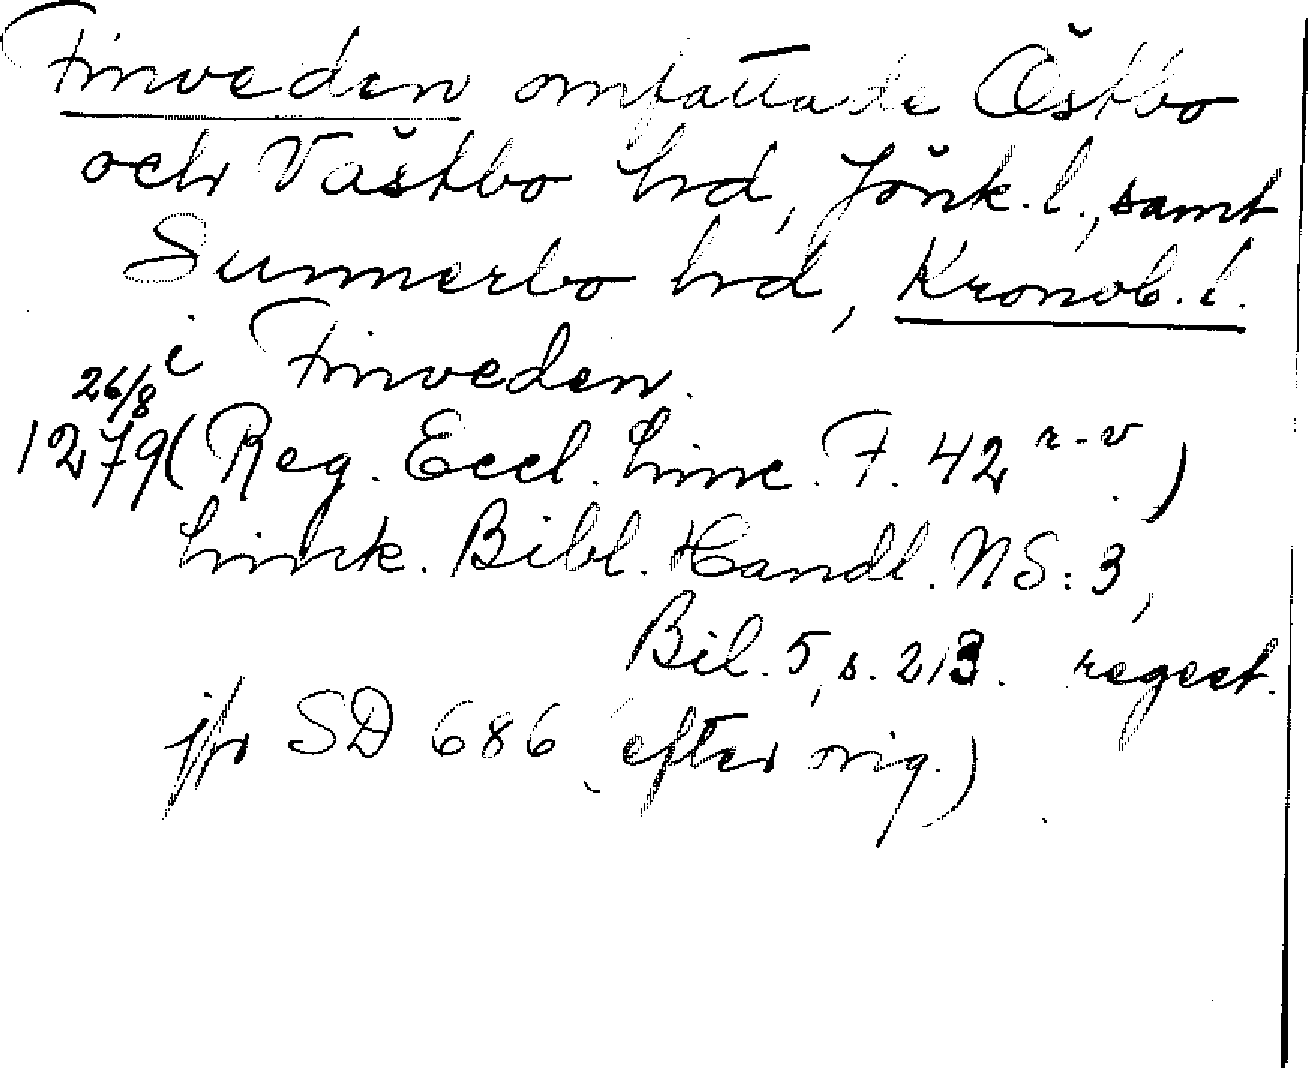 Finveden omfattade Östbo
och Västbo hrd, Jönk. l., samt
Sunnerbo hrd, Kronob. l.
i Finveden.
26/8
1279 (Reg. Eccl. Linc. F. 42 r-v.)
Linck. Bibl. Handl. NS: 3,
Bil. 5, s. 213. regest.
jfr SD 686 (efter orig.)